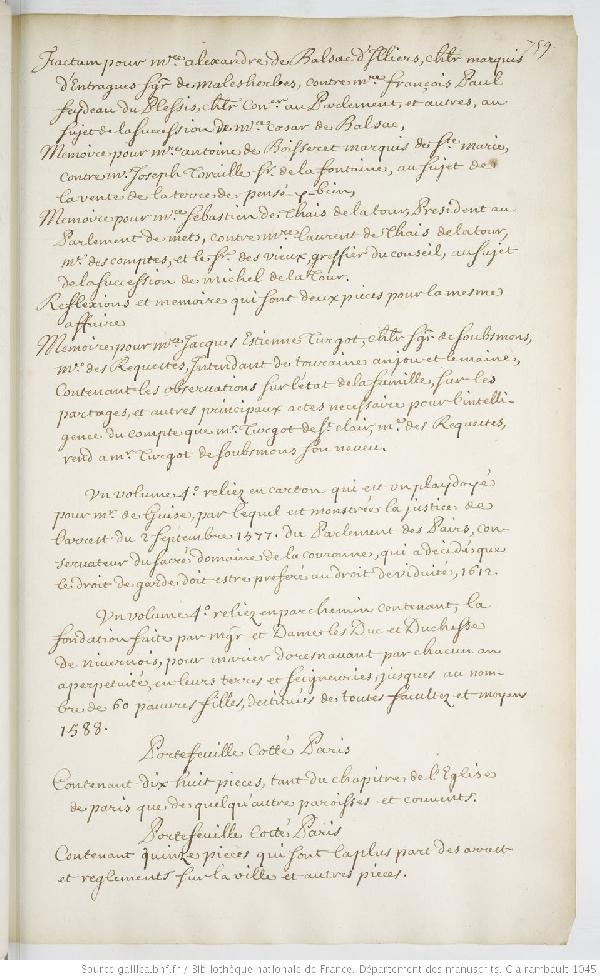 759.
Factum pour mre. alexandre de Balsac d'Illiers, chlr marquis
d'Entragues sgr. de malesherbes, contre mre. françois Paul
feydeau du Plessis, chlr Coner. au Parlement, et autres, au
sujet de la succession de mre. Cesar de Balsac,
Memoire pour mre. antoine de Boisseret marquis de Ste. marie,
contre mr. Joseph Toraille sr. de la fontaine, au sujet de
la vente de la terre de
Memoire pour mre. Sebastien de Thais de la tour, President au
Parlement de mets, contre mre. laurent de Thais de la tour,
mr. des comptes, et le sr. des vieux, greffier du conseil, au sujet
de la succession de michel de la Tour.
Reflexions et memoire qui sont deux pieces pour la mesme
affaire
Memoire pour mre. Jacques Estienne Turgot, chlr sgr. de soubsmons,
mr. des Requestes, Intendant de touraine anjou et le maine,
Contenant les observations sur l'état de la famille, sur les
partages, et autres principaux actes necessaire pour l'intelli-
gence du compte que mr. Turgot de St. clair, mr. des Requestes,
rend a mr. Turgot de soubsmons son neveu.
Un volume 4o. reliez en carton qui est un playdoyé
pour mr. de Guise, par lequel est monstrée la justice de
l'arrest du 2 septembre 1577. du Parlement des Pairs, con-
servateur du sacré domaine de la couronne, qui a décidé que
le droit de garde doit estre preferé au droit de viduité, 1612.
Un volume 4o. reliez en parchemin contenant, la
fondation faite par mgr et Dame les Duc et Duchesse
de nivernois, pour marier doresnavant par chacun an
a perpetuité, en leurs terres et seigneuries, jusques au nom-
bre de 60 pauvres filles, destituées de toutes facultez et moyens
1588.
Portefeuille Cotté Paris
Contenant dix huit pieces, tant du chapitre de l'Eglise
de paris que de quelqu'autre paroisses et couvents.
Portefeuille Cotté Paris
Contenant quinze pieces qui sont la plus part des arrest
et reglements sur la ville et autres pieces.
Source gallica.bnf.fr / Bibliothèque nationale de France. Département des manuscrits. Clairambault 1045